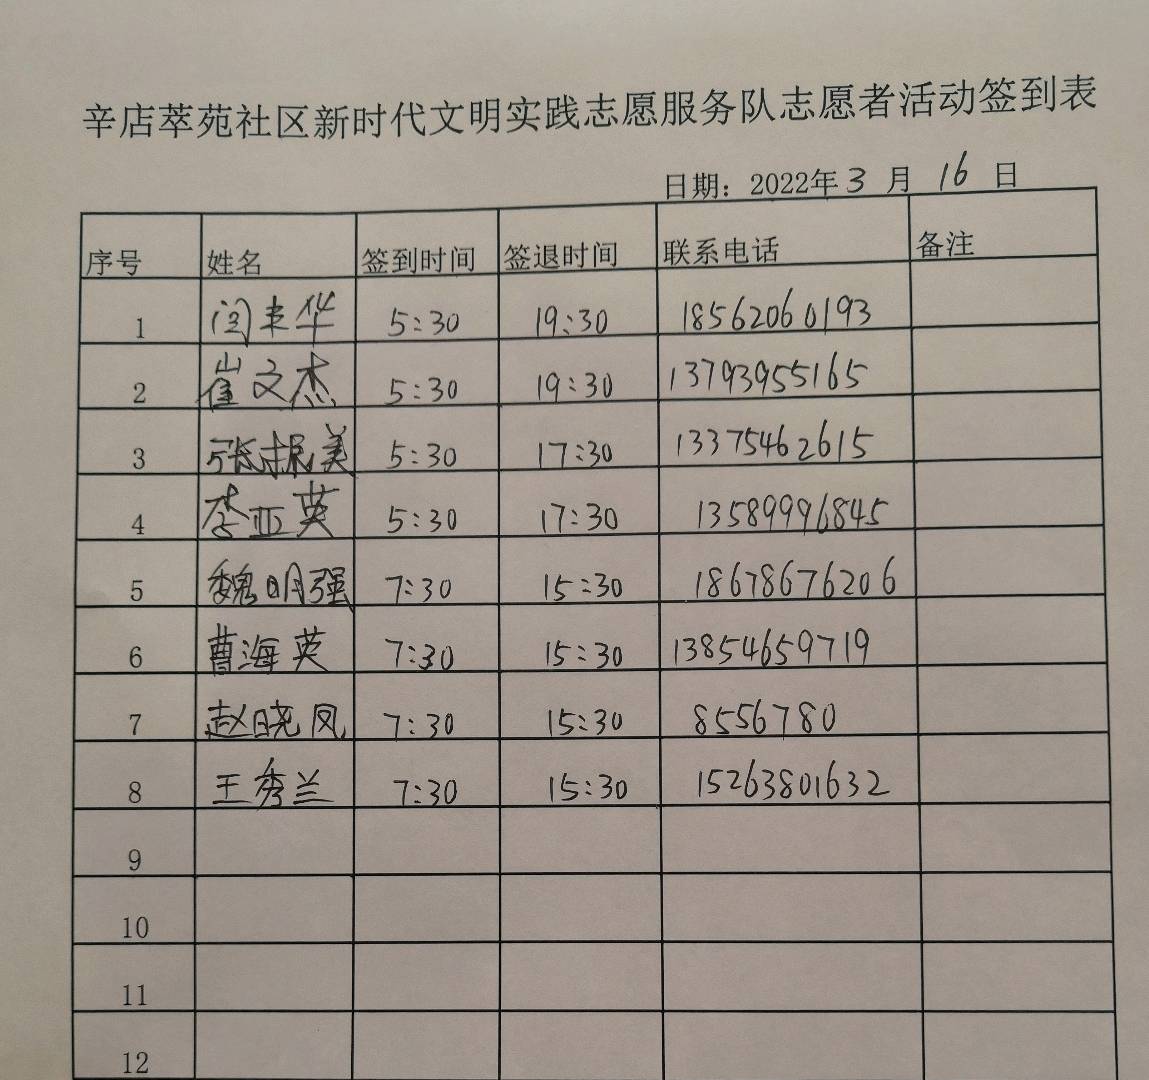 辛店萃苑社区新时代文明实践志愿服务队志愿者活动签到表
日期：2022年3月16日
序号 姓名 签到时间 签退时间 联系电话 备注
1 闫丰华 5:30 19:30 18562060193
2 崔文杰 5:30 19:30 13793955165
3 张振美 5:30 17:30 13375462615
4 李亚英 5:30 17:30 13589996845
5 魏明强 7:30 15:30 18678676206
6 曹海英 7:30 15:30 13854659719
7 赵晓凤 7:30 15:30 8556780
8 王秀兰 7:30 15:30 15263801632
9
10
11
12